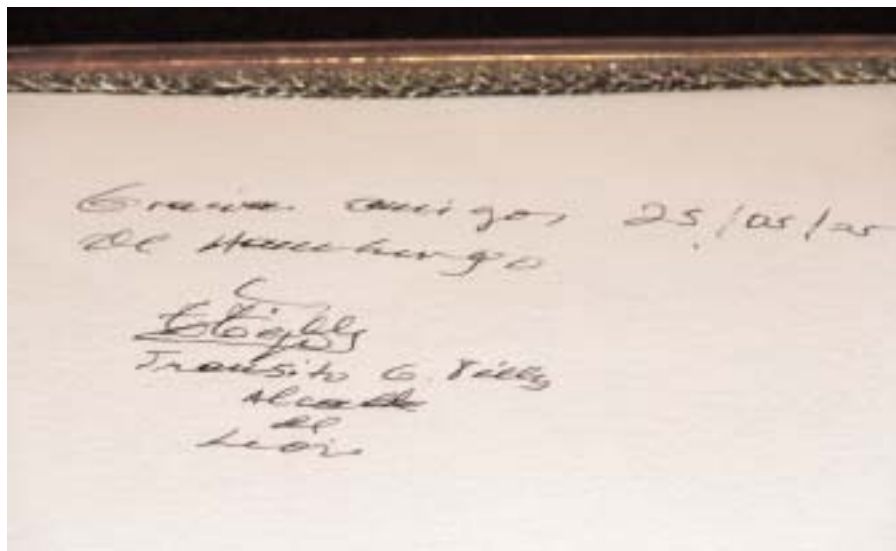 Gracias amigos 25/05/25
de Hamburgo
Transito G. Téllez
Alcalde
de
León